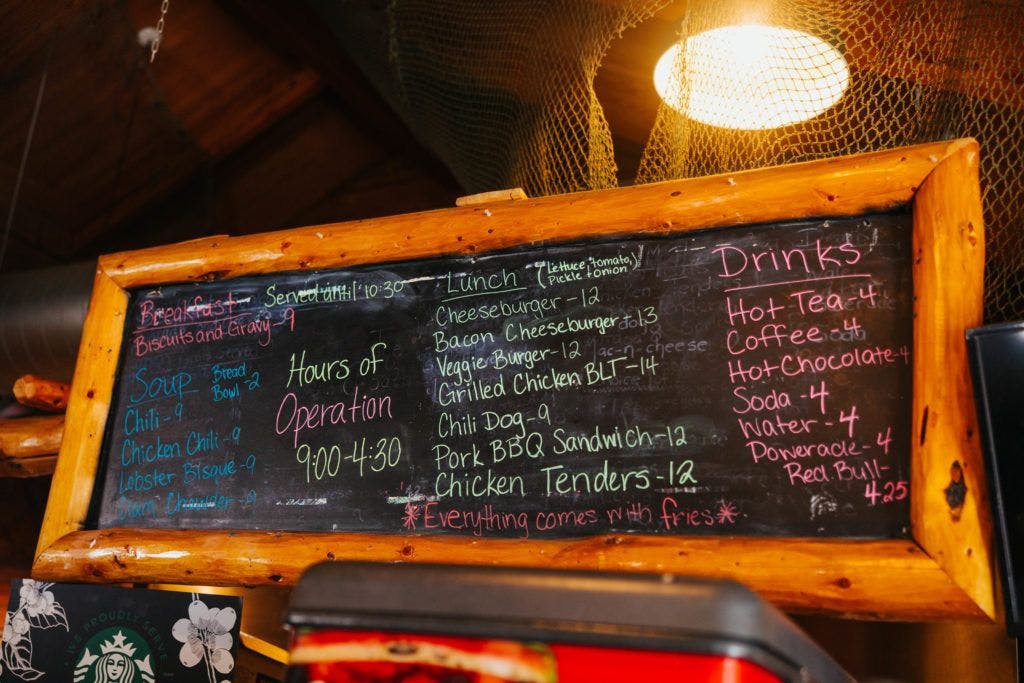 Breakfast Served until 10:30
Biscuits and Gravy-9
Soup Bread
Bowl-2
Chili-9
Chicken Chili-9
Lobster Bisque-9
Clam Chowder-9
Hours of
Operation
9:00-4:30
Lunch (Lettuce, tomato,
pickle + onion)
Cheeseburger-12
Bacon Cheeseburger-13
Veggie Burger-12
Grilled Chicken BLT-14
Chili Dog-9
Pork BBQ Sandwich-12
Chicken Tenders-12
*Everything comes with fries*
Drinks
Hot Tea-4
Coffee-4
Hot Chocolate-4
Soda-4
Water-4
Powerade-4
Red Bull-
4.25
WE PROUDLY SERVE